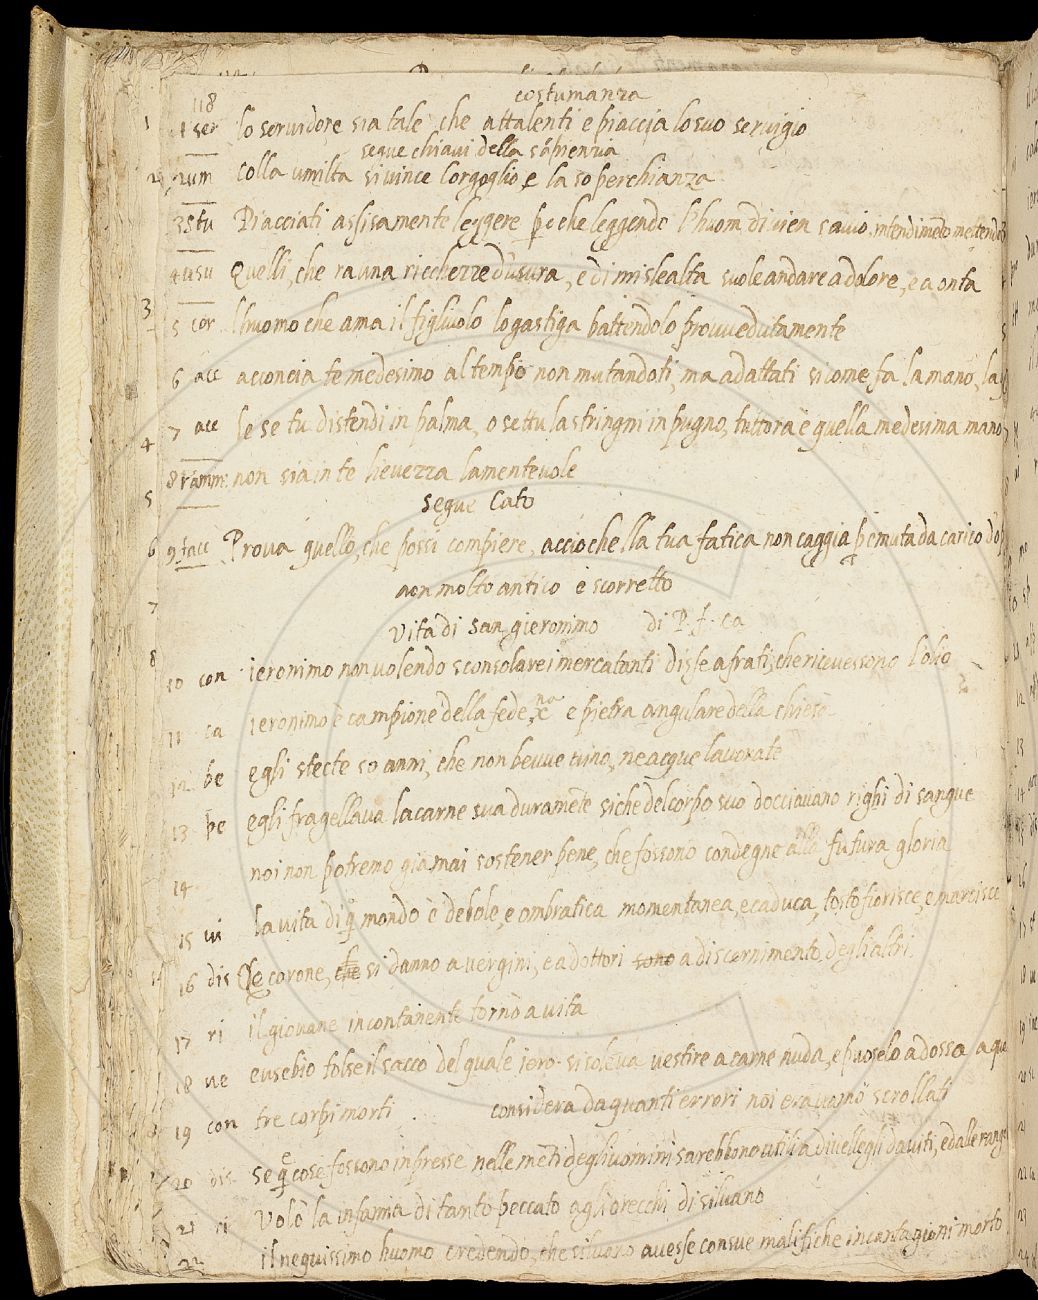 118
costumanza
1 ser lo seruidore sia tale che attalenti e piaccia lo suo seruigio
segue chiaui della sapienzia
2 um Colla umiltà si uince l'orgoglio, e la soperchianza
3 stu Piacciati assisamente leggere p che leggendo l'huom diuien sauio, intendimeto mettendo
4 usu Quelli, che rauna ricchezze d'usura, e di mislealta suole andare a dolore, e a onta
5 cor lhuomo che ama il figliuolo lo gastiga battendolo prouuedutamente
6 acc acconcia te medesimo al tempo non mutandoti, ma adattati si come fa la mano, la
7 acc se se tu distendi in palma, o settu la stringni in pugno, tuttora è quella medesima mano
8 ramm: non sia in te lieuezza lamenteuole
segue Cato
9 facc Proua quello, che possi compiere, accio che lla tua fatica non caggia da carico
non molto antico è scorretto
Vita di san gieronimo di P. f. ca
10 con ieronimo non uolendo sconsolare i mercatanti disse a frati, che riceuessono l'olio
11 ca ieronimo è campione della fede, e pietra angulare della chiesa
12 be egli stette 50 anni, che non beuue uino, ne acque lauorate
13 pe egli fragellaua la carne sua duramete siche del corpo suo docciauano righi di sangue
14 noi non potremo giamai sostener pene, che fossono condegne alla futura gloria
15 ui la uita di q mondo è debole, e ombratica momentanea, e caduca, tosto fiorisce, e marcisce
16 dis Le corone, che si danno a uergini, e a dottori sono a discernimento degli altri
17 ri il giouane incontanente tornò a uita
18 ue eusebio tolse il sacco del quale iero. si soleua uestire a carne nuda, e puoselo adosso a que
19 con tre corpi morti. considera da quanti errori noi erauamo scrollati
20 dis. se q e cose fossono inpresse nelle meti degli uomini sarebbono utili a diuellegli da uiti, e dalle
21 ri Volò la infamia di tanto peccato agli orecchi di siluano
22 il nequissimo huomo credendo, che siluano auesse con sue malifiche incantagioni morto